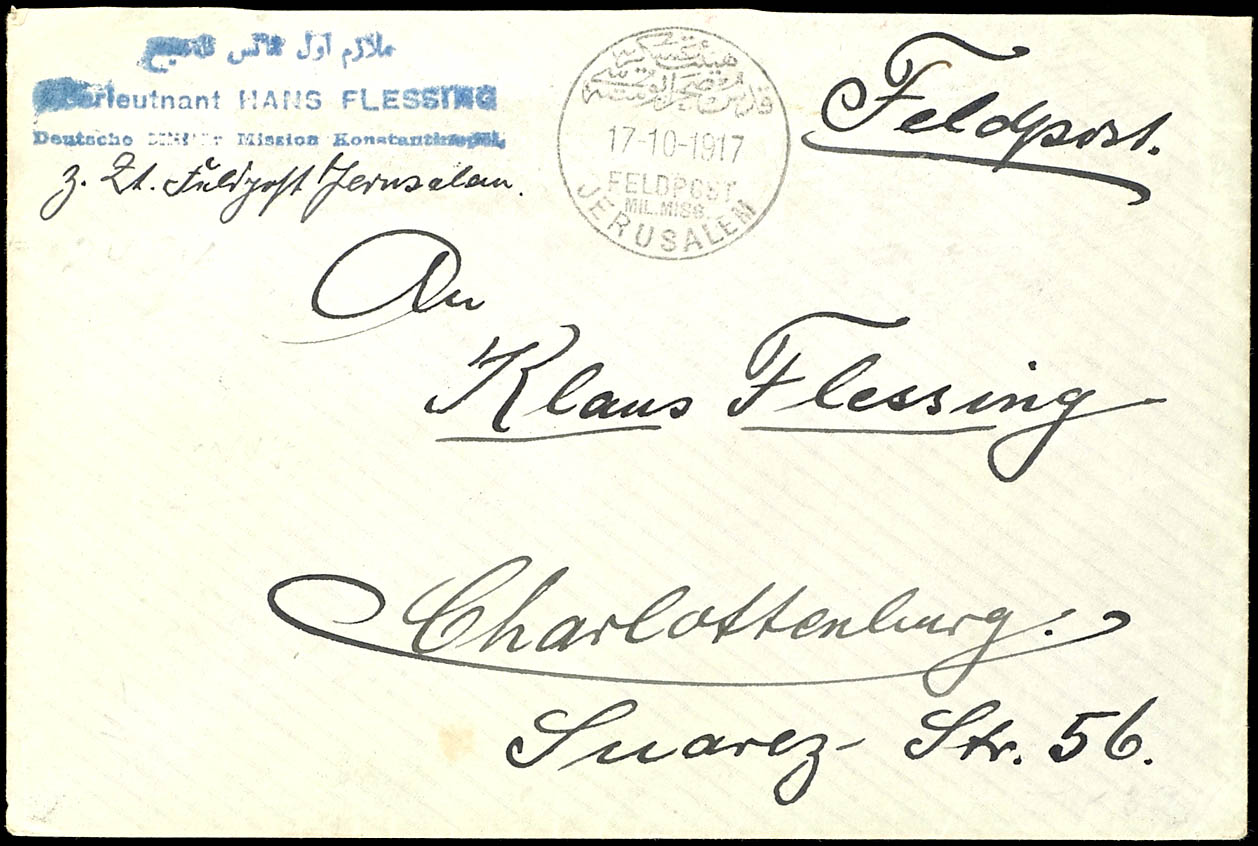 ملازم اول هانس
Oberleutnant HANS FLESSING
Deutsche Militär Mission Konstantinopel.
z. Zt. Feldpost Jerusalem.
17-10-1917
FELDPOST
MIL. MISS.
JERUSALEM
Feldpost.
An
Klaus Flessing
Charlottenburg.
Suarez- Str. 56.